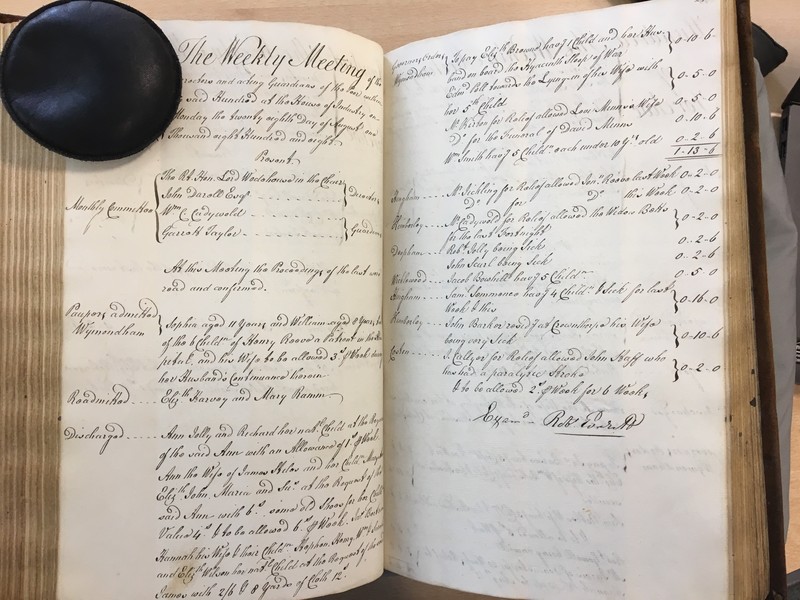 The Weekly Meeting of the
Directors and acting Guardians of the Poor within
said Hundred at the House of Industry on
Monday the twenty eighth Day of August one
Thousand eight Hundred and eight.
Present
The Rt. Hon. Lord Wodehouse in the Chair
John Darell Esqr.
Directors
Monthly Committee
Wm. C. Cadywold
Garrett Taylor
Guardians
At this Meeting the Proceedings of the last were
read and confirmed.
Paupers admitted
Wymondham
Sophia aged 11 Years and William aged 8 Years, two
of the 6 Childn. of Henry Reeve a Patient in the Hos-
pital, and his Wife to be allowed 3s. ⅌ Week during
her Husband's Continuance therein
Readmitted
Elizth. Harvey and Mary Ramm
Discharged
Ann Jolly and Richard her natl. Child at the Request
of the said Ann with an Allowance of 1s. ⅌ Week
Ann the Wife of James and her Childn.
Elizth. John, Maria and at the Request of the
said Ann with 6s. some old Shoes for her Childn.
Value 4s. & to be allowed 6s. ⅌ Week.
Hannah his Wife & their Childn. Stephen, Henry, Wm.
and Elizth. Wilson her natl. Child at the Request of the
James with 2/6 & 8 Yards of Cloth 12s.
Wymondham
To pay Elizth. Browne havg. 1 Child and her Hus-
band on board the Hyacinth Sloop of War
0-10-6
towards the Lying-in of his Wife with
her 5th. Child
0-5-0
Mr. for Relief allowed Wife
0-5-0
Do. for the Funeral of David Munn
0-10-6
Wm. Smith havg. 5 Childn. each under 10 Yrs. old
0-2-6
1-13-6
Hingham
Mr. Jickling for Relief allowed Reeve last Week
0-2-0
Do. for Do. this Week
0-2-0
Kimberley
Mr. Cadywold for Relief allowed the Widow Betts
for the last Fortnight
0-2-0
Deopham
Robt. Jolly being Sick
0-2-6
John Searl being Sick
0-2-6
Wicklewood
Jacob Bowhill havg. 5 Childn.
0-5-0
Hingham
Saml. Simmonco havg. 4 Childn. & Sick for last
Week & this
0-16-0
Kimberley
John Barker resideg. at Crownthorpe his Wife
being very Sick
0-10-6
Coston
for Relief allowed John Staff who
has had a paralytic Stroke
0-2-0
& to be allowed 2s. ⅌ Week for 6 Weeks
Examd. Robt.